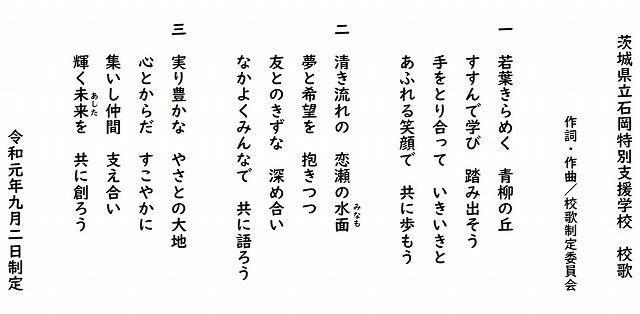 茨城県立石岡特別支援学校　校歌
作詞・作曲／校歌制定委員会
一　若葉きらめく　青柳の丘
すすんで学び　踏み出そう
手をとり合って　いきいきと
あふれる笑顔で　共に歩もう
二　清き流れの　恋瀬の水面
みなも
夢と希望を　抱きつつ
友とのきずな　深め合い
なかよくみんなで　共に語ろう
三　実り豊かな　やさとの大地
心とからだ　すこやかに
集いし仲間　支え合い
輝く未来を　共に創ろう
あした
令和元年九月二日制定